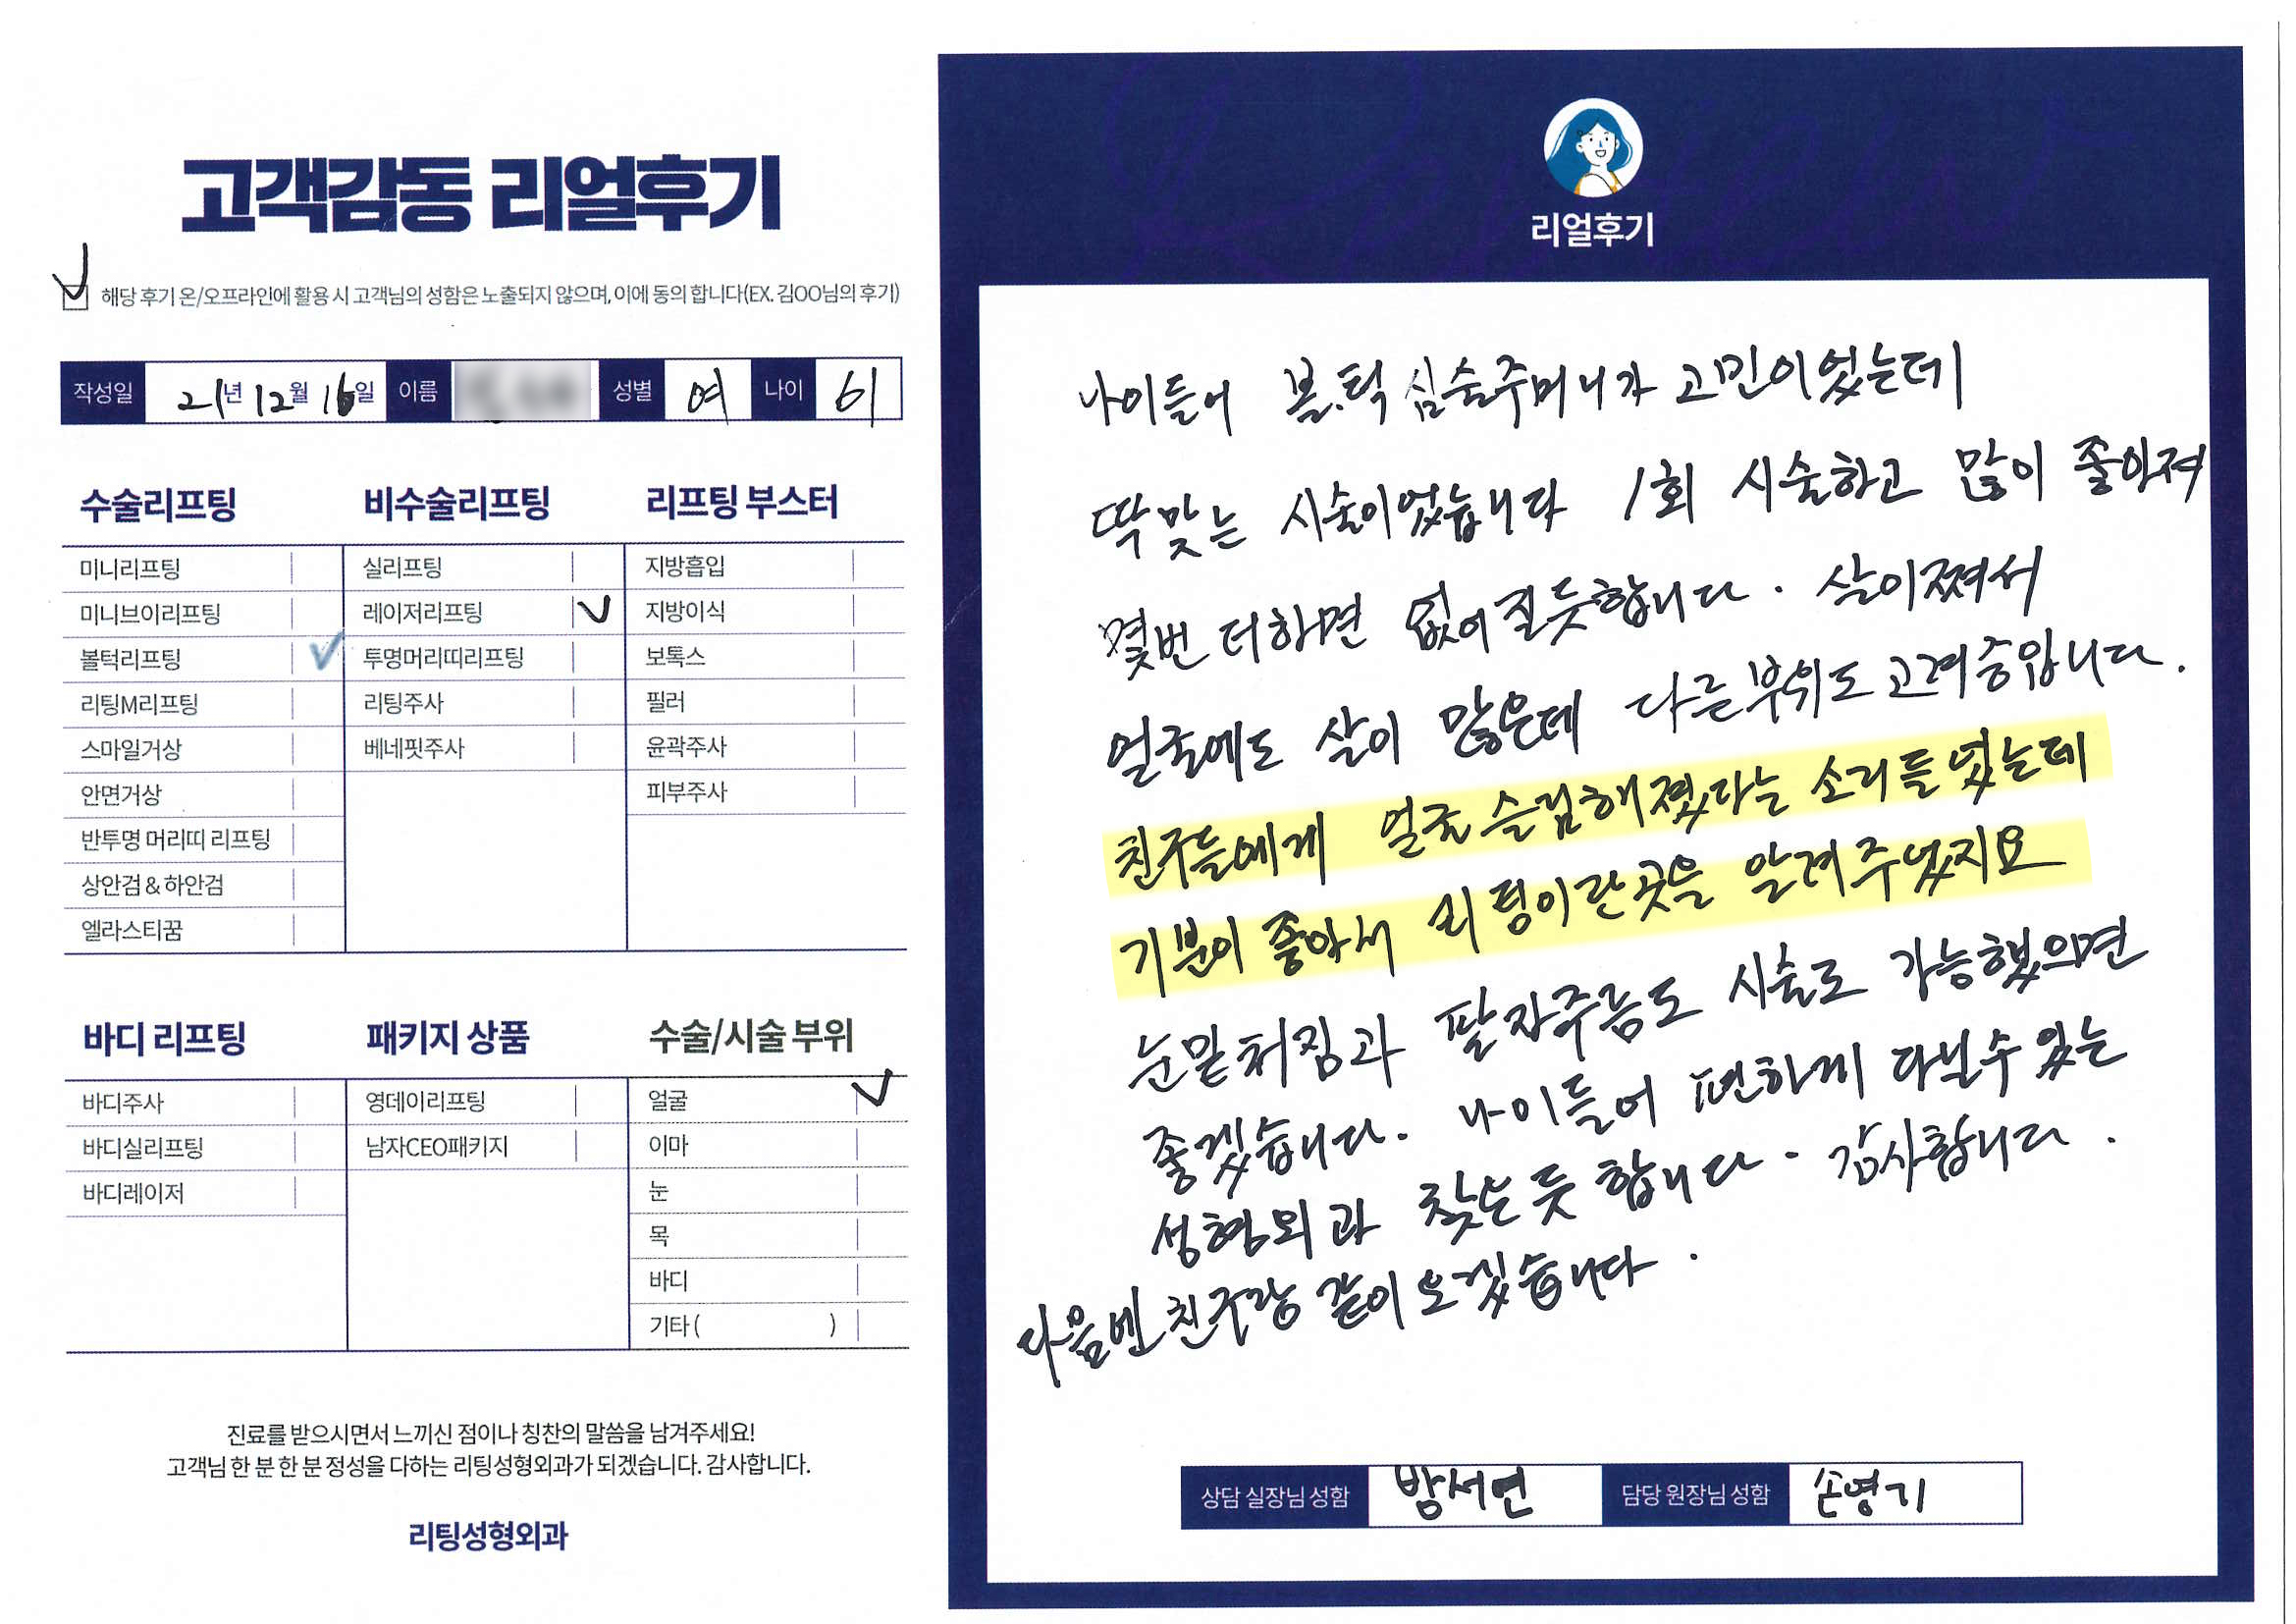 고객감동 리얼후기
해당 후기 온/오프라인에 활용 시 고객님의 성함은 노출되지 않으며, 이에 동의 합니다(EX. 김OO님의 후기)
작성일 21년 12월 16일 이름 성별 여 나이 61
수술리프팅
미니리프팅
미니브이리프팅
볼턱리프팅
리팅M리프팅
스마일거상
안면거상
반투명 머리띠 리프팅
상안검 & 하안검
엘라스티꿈
비수술리프팅
실리프팅
레이저리프팅
투명머리띠리프팅
리팅주사
베네핏주사
리프팅 부스터
지방흡입
지방이식
보톡스
필러
윤곽주사
피부주사
바디 리프팅
바디주사
바디실리프팅
바디레이저
패키지 상품
영데이리프팅
남자CEO패키지
수술/시술 부위
얼굴
이마
눈
목
바디
기타 ( )
진료를 받으시면서 느끼신 점이나 칭찬의 말씀을 남겨주세요!
고객님 한 분 한 분 정성을 다하는 리팅성형외과가 되겠습니다. 감사합니다.
리팅성형외과
리얼후기
나이들어 볼.턱 심술주머니가 고민이었는데
딱맞는 시술이었습니다 1회 시술하고 많이 좋아져
몇번 더하면 없어질듯합니다. 살이쪄서
얼굴에도 살이 많은데 다른부위도 고려중입니다.
친구들에게 얼굴 슬림해졌다는 소리들었는데
기분이 좋아서 리팅이란곳을 알려주었지요
눈밑처짐과 팔자주름도 시술도 가능했으면
좋겠습니다. 나이들어 편하게 다닐수 있는
성형외과 찾는듯 합니다. 감사합니다.
다음번 친구랑 같이오겠습니다.
상담 실장님 성함 서연 담당 원장님 성함 손영기